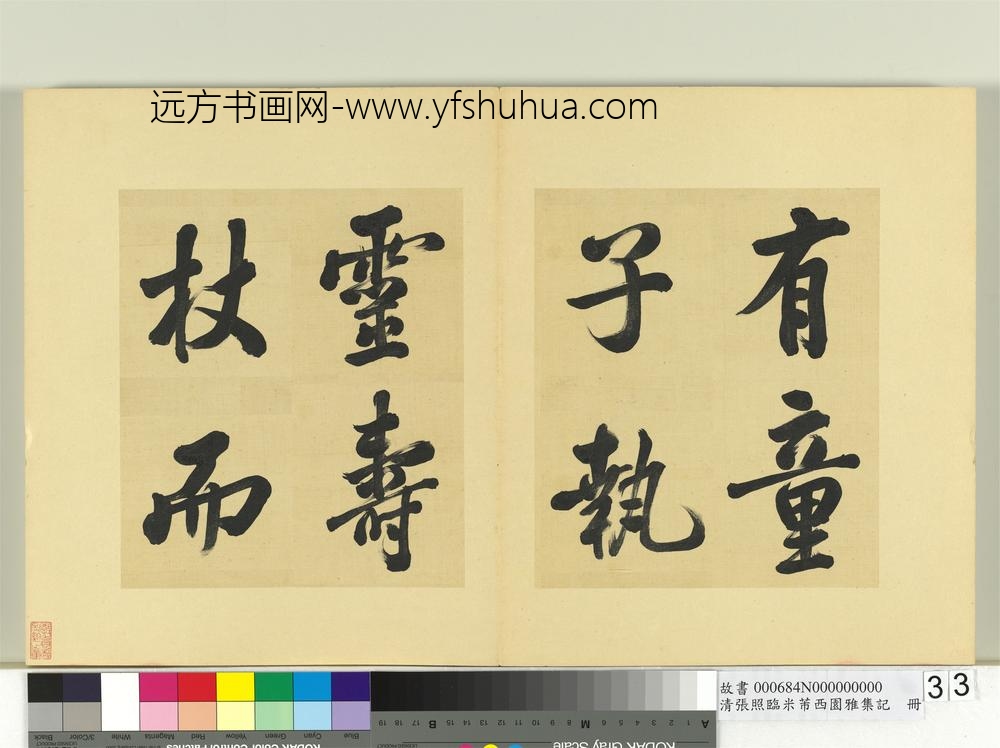 远方书画网-www.yfshuhua.com
有童
子執
靈壽
杖而
故書 000684N000000000
清張照臨米芾西園雅集記 冊
33
Black
3/Color
White
Magenta
Red
Yellow
Green
Cyan
Blue
A 1 2 3 4 5 6 M 8 9 10 11 12 13 14 15 B 17 18 19
KODAK Color Control Patches
KODAK Gray Scale